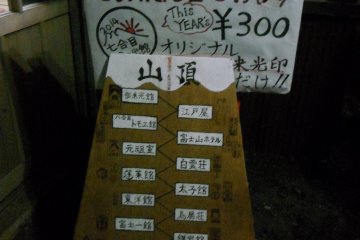 This
YEAR's
¥300
2014
七合目
オリジナル
来光印
だけ!!
山頂
御来光館
江戸屋
八合目
トモエ館
富士山ホテル
元祖室
白雲荘
蓬莱館
太子館
東洋館
鳥居荘
富士一館
鎌岩館